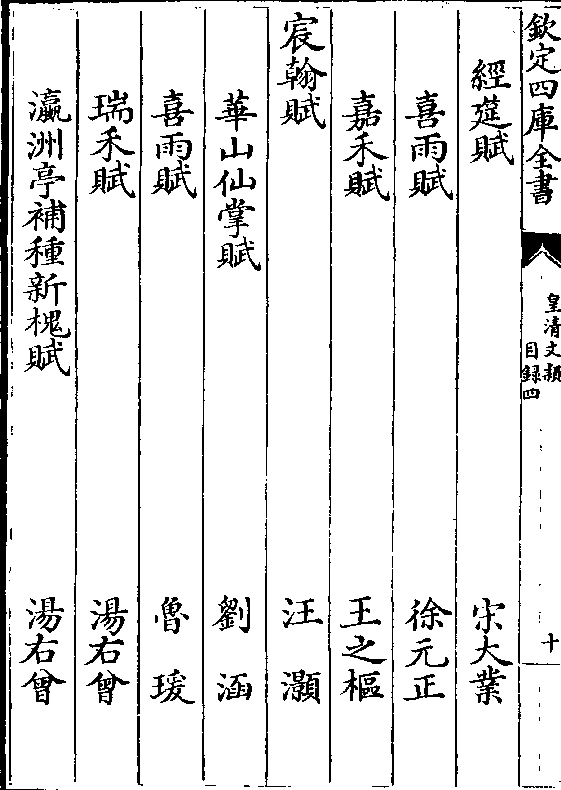 欽定四庫全書
皇清文穎
目録四
十
經筵賦 宋大業
喜雨賦 徐元正
嘉禾賦 王之樞
宸翰賦 汪灝
華山仙掌賦 劉涵
喜雨賦 魯瑗
瑞禾賦 湯右曾
瀛洲亭補種新槐賦 湯右曾